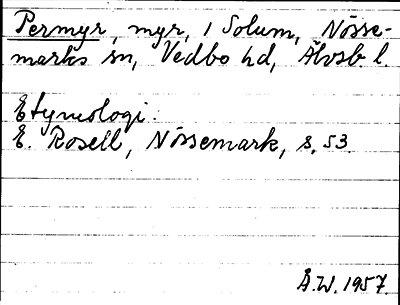 Permyr, myr, i Solum, Nösse-
marks sn, Vedbo hd, Älvsb l.
Etymologi:
E. Rosell, Nössemark, s. 53.
Å.W. 1957.